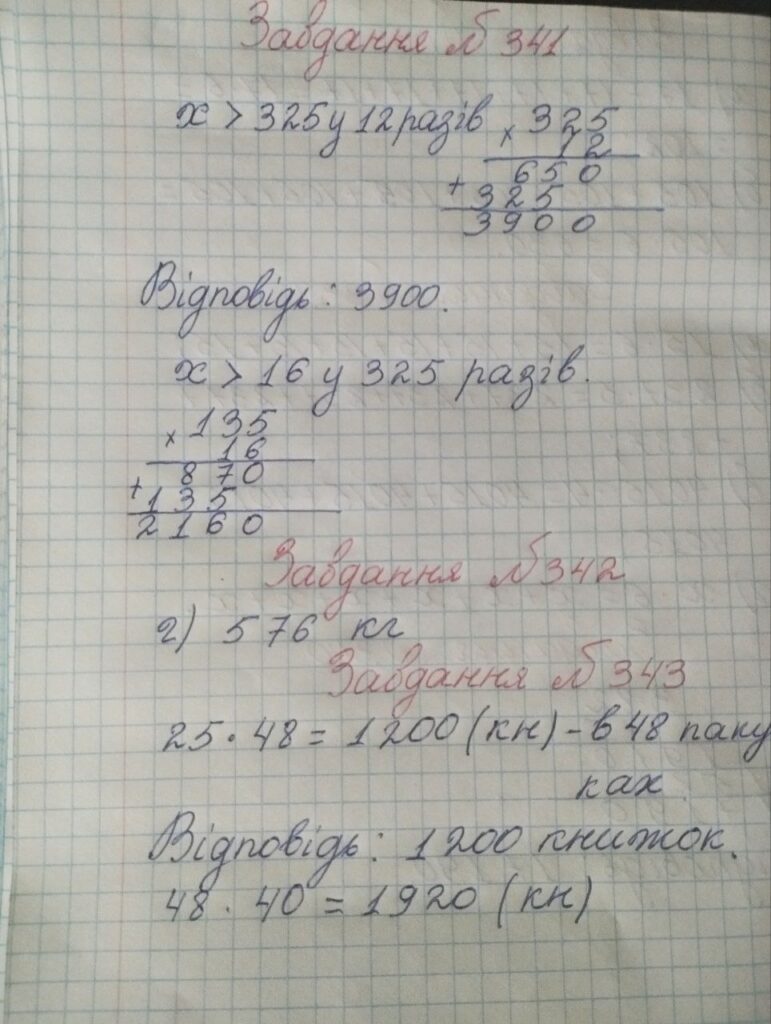 Завдання № 341
х > 325 у 12 разів × 325
12
650
+ 325
3900
Відповідь: 3900.
х > 16 у 325 разів.
× 135
16
870
+ 135
2160
Завдання № 342
г) 576 кг
Завдання № 343
25 · 48 = 1200 (кн) – в 48 паку
ках
Відповідь: 1200 книжок.
48 · 40 = 1920 (кн)